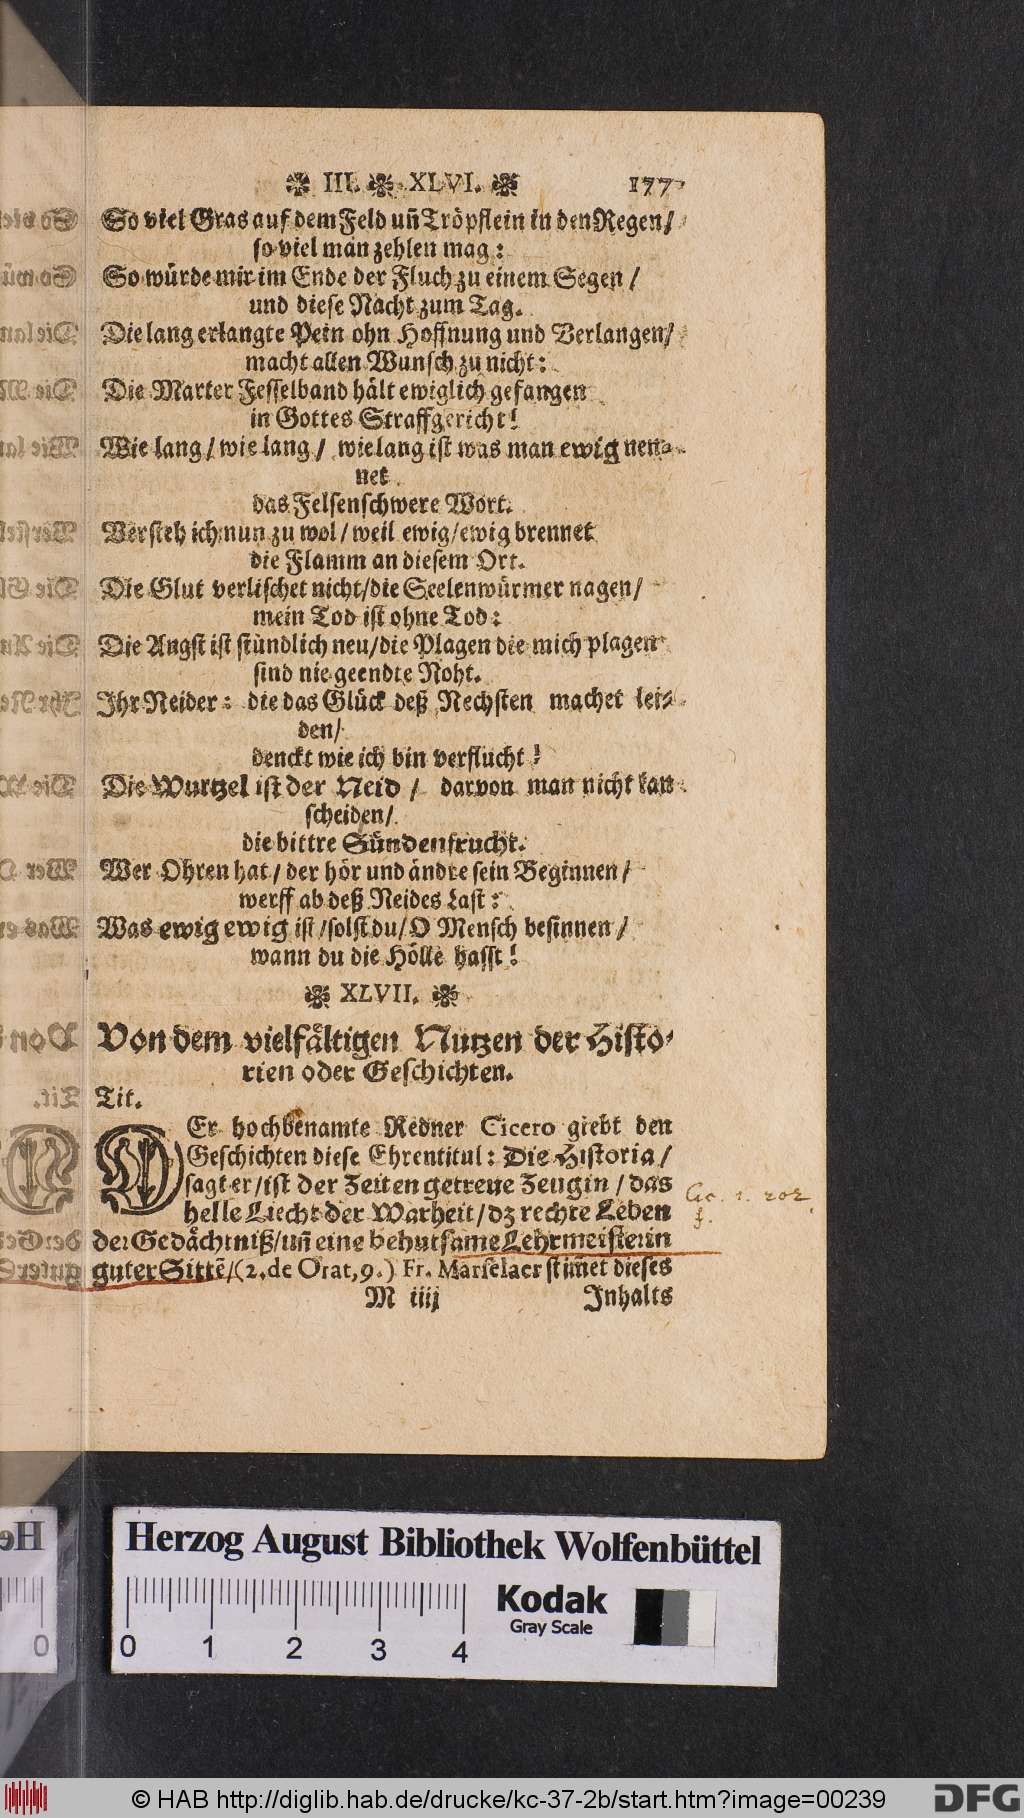 III. XLVI. 177
So viel Gras auf dem Feld uñ Tröpflein in den Regen/
so viel man zehlen mag:
So würde mir im Ende der Fluch zu einem Segen /
und diese Nacht zum Tag.
Die lang erlangte Pein ohn Hoffnung und Verlangen/
macht allen Wunsch zu nicht:
Die Marter Fesselband hält ewiglich gefangen
in Gottes Straffgericht!
Wie lang / wie lang / wie lang ist was man ewig nen-
net
das Felsenschwere Wort.
Versteh ich nun zu wol / weil ewig/ewig brennet
die Flamm an diesem Ort.
Die Glut verlischet nicht/die Seelenwürmer nagen/
mein Tod ist ohne Tod:
Die Angst ist stündlich neu/die Plagen die mich plagen
sind nie geendte Noht.
Ihr Neider: die das Glück deß Nechsten machet lei-
den/
denckt wie ich bin verflucht!
Die Wurtzel ist der Neid / darvon man nicht kan
scheiden/
die bittre Sündenfrucht.
Wer Ohren hat / der hör und ändre sein Beginnen /
werff ab deß Neides Last:
Was ewig ewig ist /solst du/O Mensch besinnen /
wann du die Hölle hasst!
XLVII.
Von dem vielfåltigen Nutzen der Histo-
rien oder Geschichten.
Tit.
DEr hochbenamte Redner Cicero giebt den
Geschichten diese Ehrentitul: Die Historia /
sagt er/ist der Zeiten getreue Zeugin / das
helle Liecht der Warheit/dz rechte Leben
der Gedåchtniß/uñ eine behutsame Lehrmeisterin
guter Sittē/(2. de Orat, 9.) Fr. Marselaer stim̃et dieses
M iiij Inhalts
Cic. 1. 202
f.
Herzog August Bibliothek Wolfenbüttel
Kodak
Gray Scale
0 1 2 3 4
© HAB http://diglib.hab.de/drucke/kc-37-2b/start.htm?image=00239
DFG